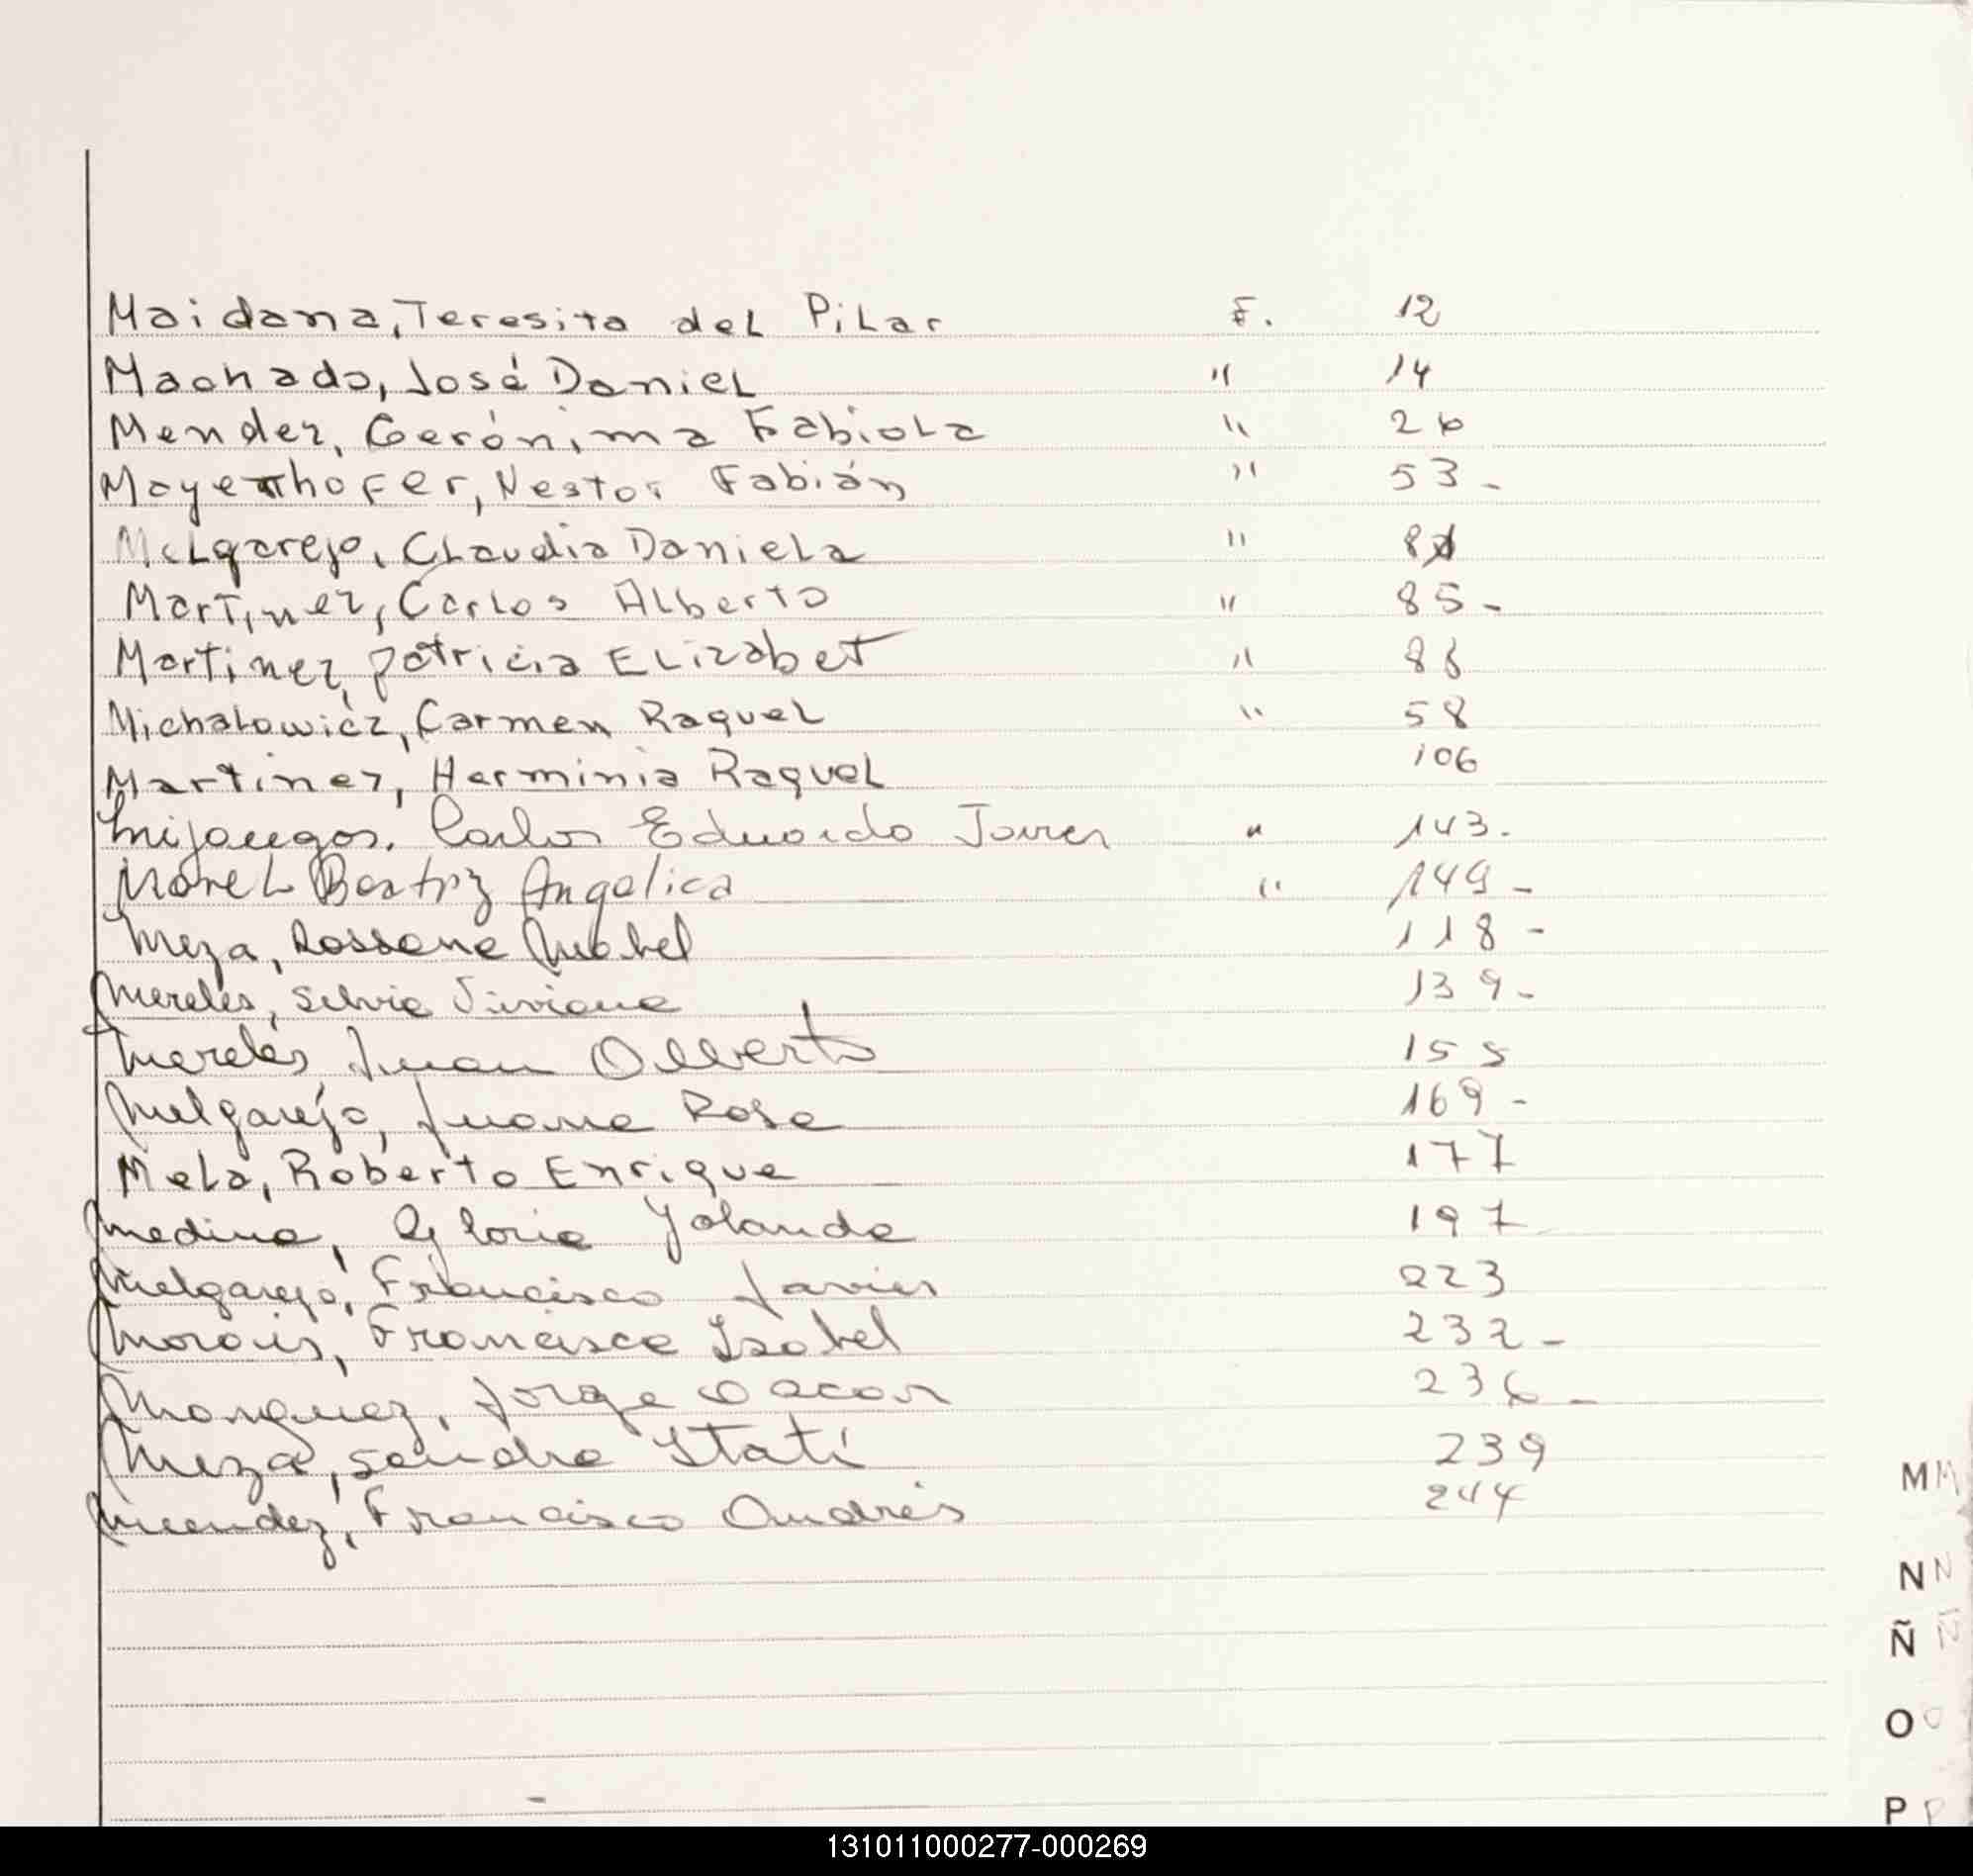 Maidana, Teresita del Pilar F. 12
Machado, José Daniel " 14
Mendez, Gerónima Fabiola " 26
Mayerhofer, Nestor Fabián " 53-
Melgarejo, Claudia Daniela " 8
Martinez, Carlos Alberto " 85-
Martinez, Patricia Elizabet " 86
Michalowicz, Carmen Raquel " 58
Martinez, Herminia Raquel 106
Mijangos, Carlos Eduardo " 143.
Morel Beatriz Angelica " 149-
Meza, Rossana Mabel 118-
Mereles, Silvia Viviana 139-
Mereles, Juan Alberto 155
Melgarejo, Juana Rosa 169-
Mela, Roberto Enrique 177
Medina, Gloria Yolanda 197
Melgarejo, Francisco Javier 223
Morais, Francisca Isabel 232-
Jorge Oscar 236-
Meza, Sandra Itatí 239
Mendez, Francisco Andrés 244
M
N
Ñ
O
P
131011000277-000269